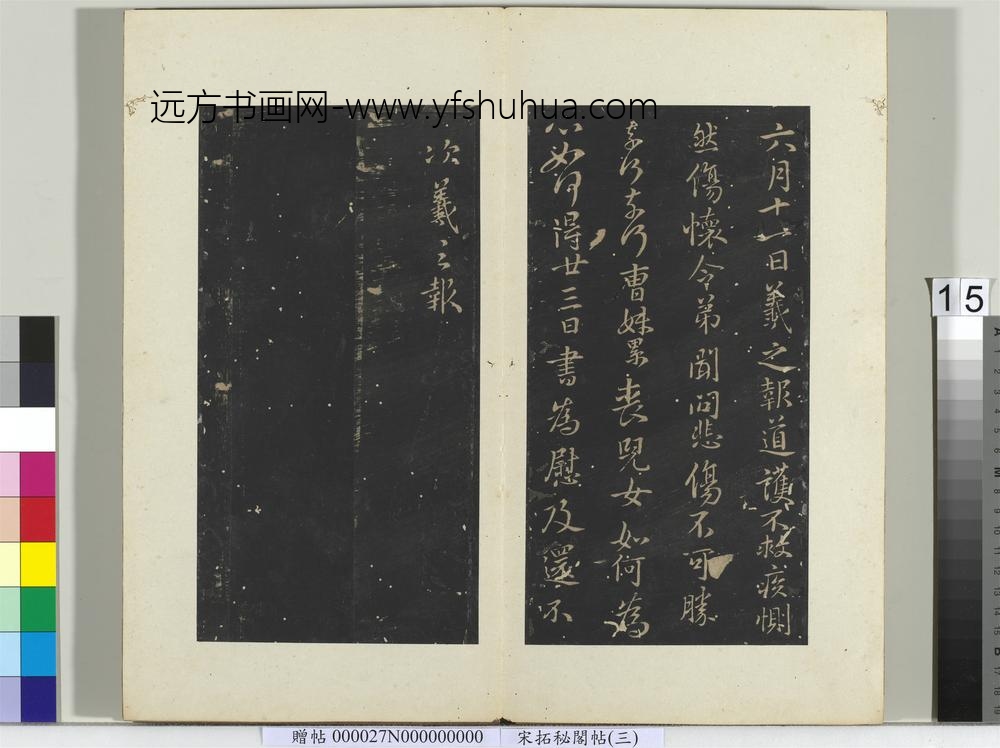 远方书画网-www.yfshuhua.com
六月十一日羲之報道護不救疾惻
然傷懷令弟聞問悲傷不可勝
奈何奈何曹妹累喪兒女如何為
心如何得廿三日書為慰及還不
次羲之報
15
贈帖 000027N000000000
宋拓秘閣帖(三)